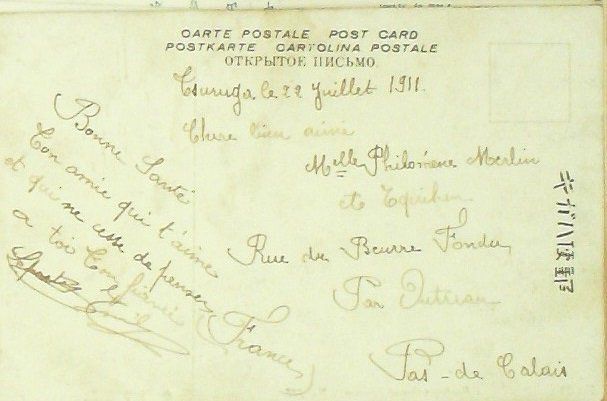 CARTE POSTALE POST CARD
POSTKARTE CARTOLINA POSTALE
ОТКРЫТОЕ ПИСЬМО.
Tsuruga le 22 Juillet 1911.
Chere bien aimé
Melle Philomène Merlin
Equihen
Rue du Beurre Fondu
Par Outreau
Pas-de Calais
(France)
Bonne Santé
Ton amie qui t'aime
et qui ne cesse de penser
a toi Ton fiancé
Emile